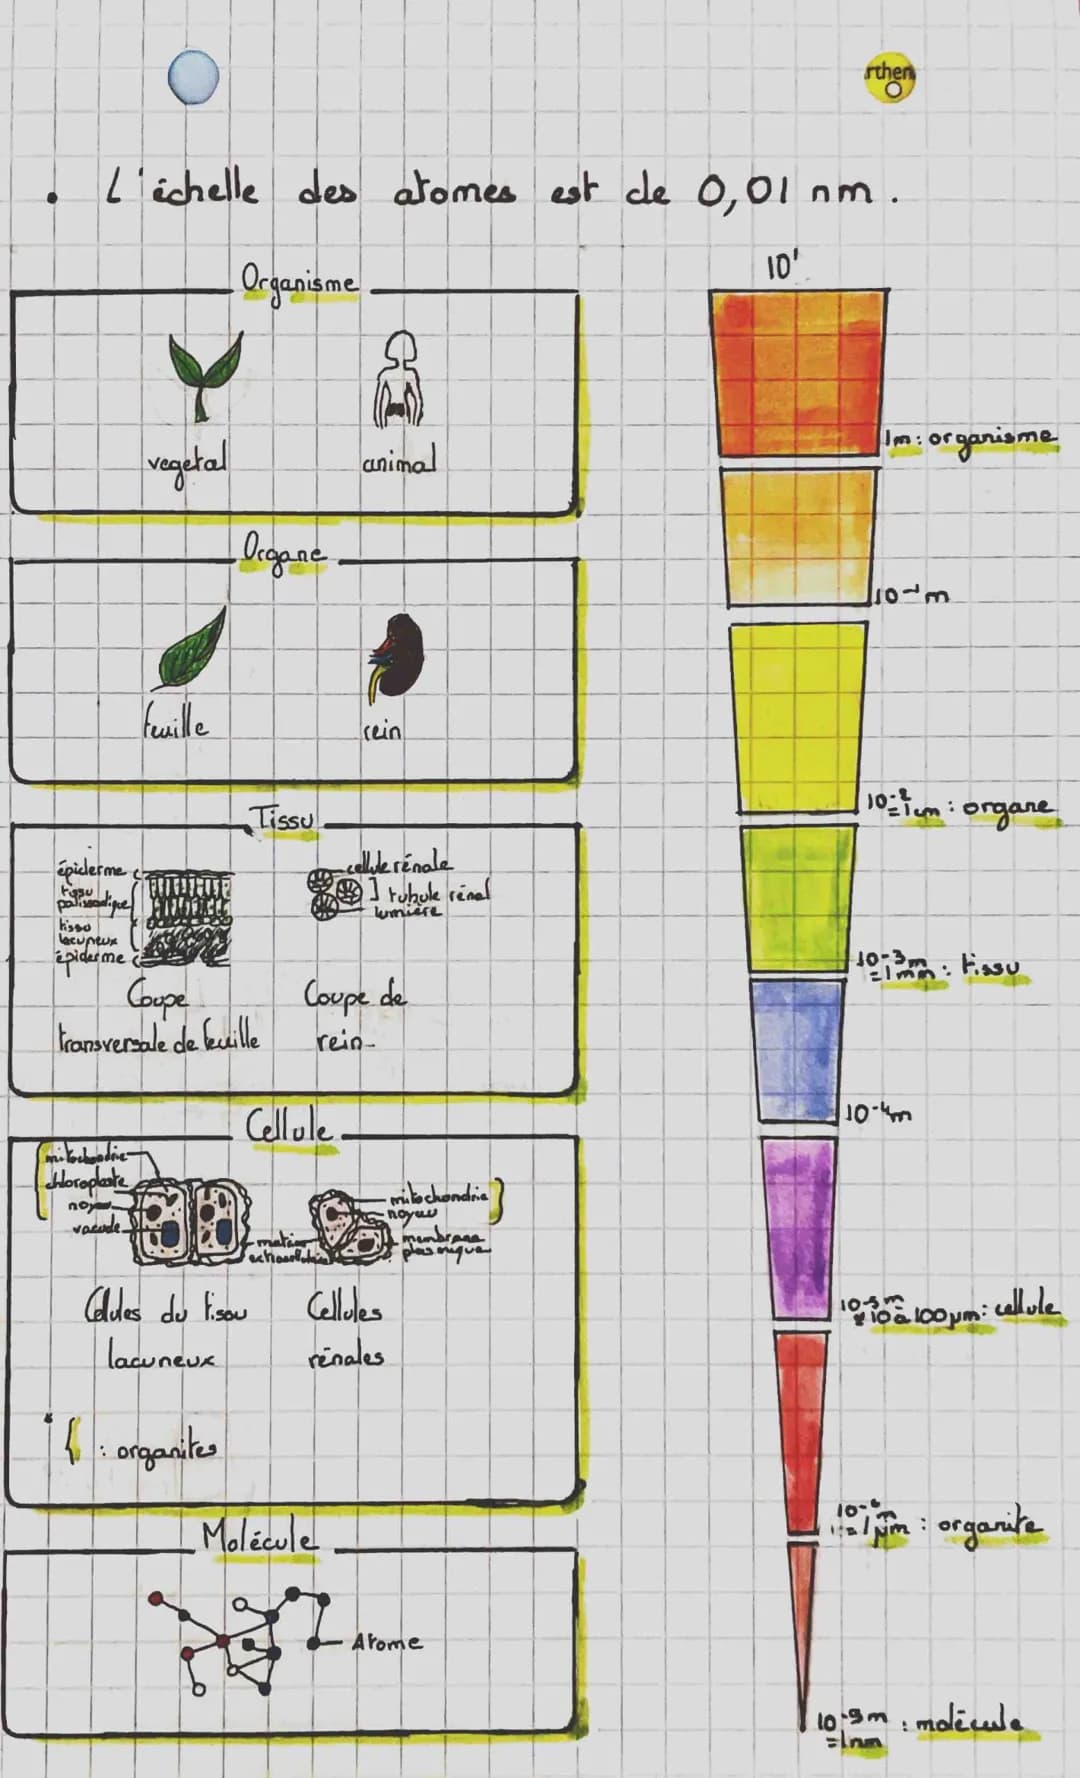 rthen
. L'échelle des atomes est de 0,01 nm.
Organisme
vegetal
animal
Organe
feuille
rein
Tissu
épiderme
tissu
palissadique
tissu
lacuneux
épiderme
cellule rénale
tubule rénal
lumière
Coupe
transversale de feuille
Coupe de
rein
Cellule
mitochondrie
chloroplaste
noyau
vacuole
mitochondrie
noyau
membrane
plasmique
Cellules du tissu
lacuneux
Cellules
rénales
* { : organites
Molécule
Atome
10¹
1m : organisme
10⁻¹m
10⁻²
=1cm : organe
10⁻³m
=1mm : tissu
10⁻⁴m
10⁻⁵m
10 à 100µm : cellule
10⁻⁶m
=1µm : organite
10⁻⁹m : molécule
=1nm